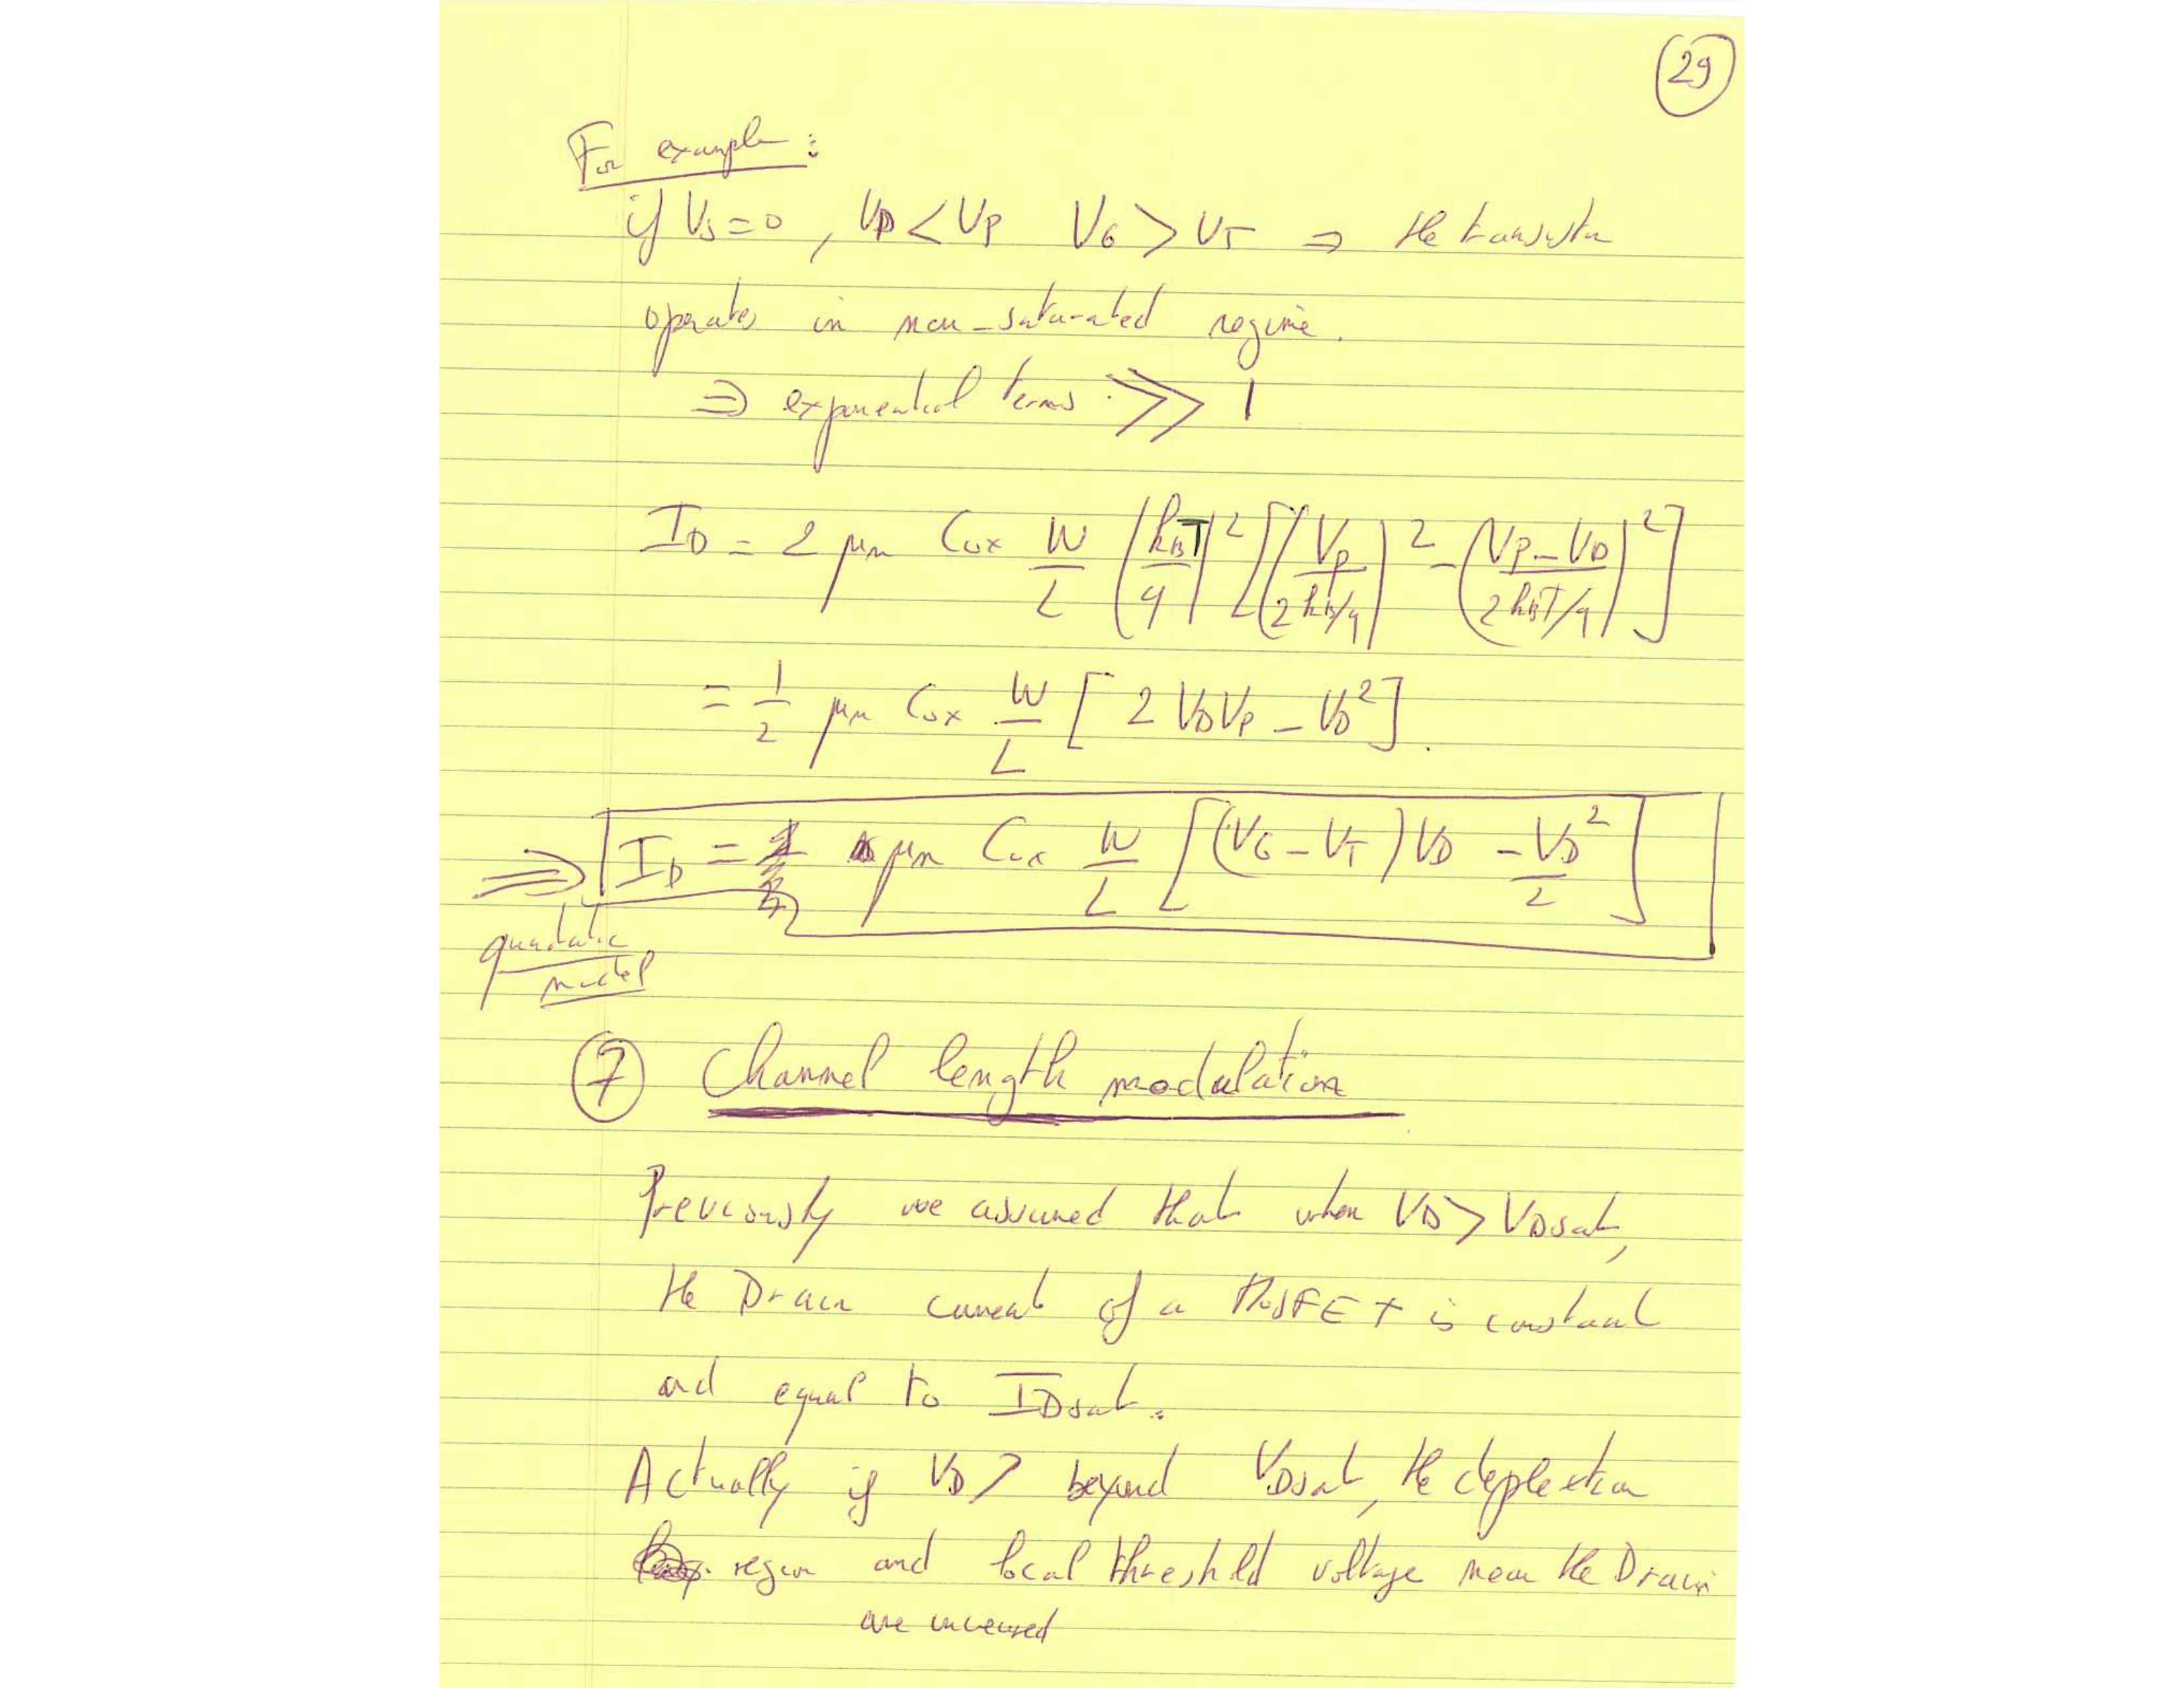 29
For example :
if Vs=0 , VD < VP VG > VT ⇒ the transistor
operates in non-saturated regime.
⇒ exponential terms >> 1
ID = 2 μn Cox W/L (kBT/q)² [(VP/(2kB/q))² - ((VP-VD)/(2kBT/q))²]
= 1/2 μn Cox W/L [2 VDVP - VD²].
⇒ ID = μn Cox W/L [(VG-VT)VD - VD²/2]
quadratic
model
7 Channel length modulation
Previously we assumed that when VD > VDsat,
the Drain current of a MOSFET is constant
and equal to IDsat.
Actually if VD ↗ beyond VDsat, the depletion
region and local threshold voltage near the Drain
are increased